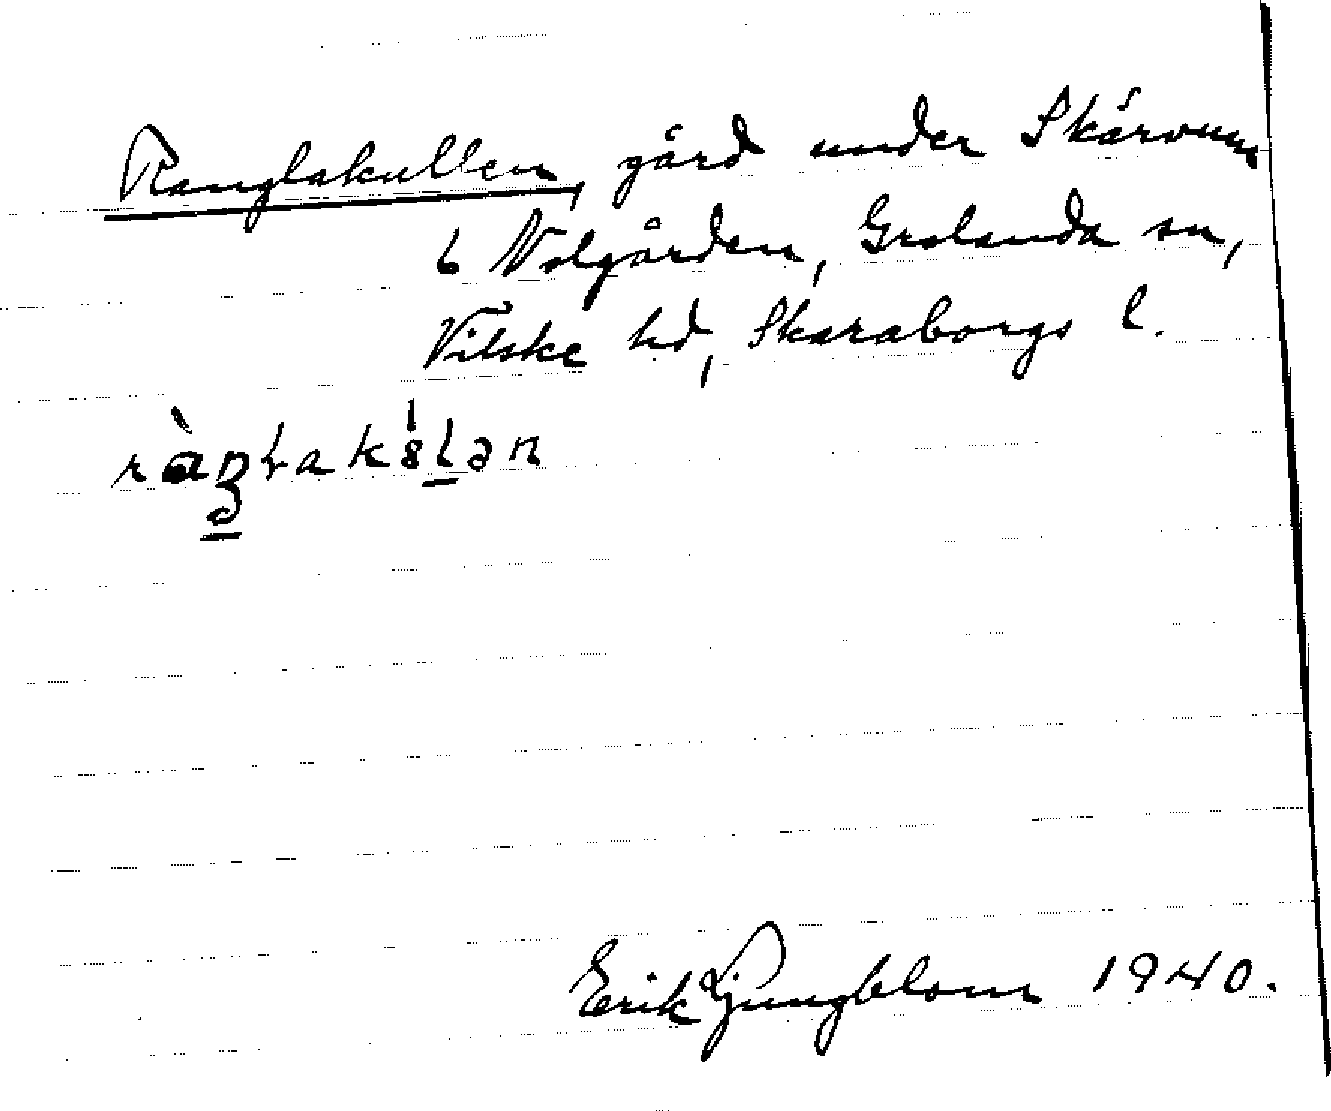 Ranglakullen, gård under Skårvum
6 Nolgården, Grolanda sn,
Vilske hd, Skaraborgs l.
Erik Ljungblom 1940.